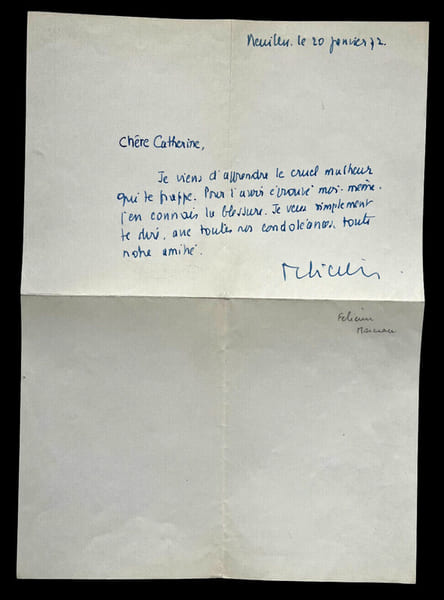 Neuilly. le 20 janvier 72.
Chère Catherine,
Je viens d'apprendre le cruel malheur
qui te frappe. Pour l'avoir éprouvé moi-même,
j'en connais la blessure. Je veux simplement
te dire, avec toutes nos condoléances, toute
notre amitié.
Félicien
Félicien
Marceau